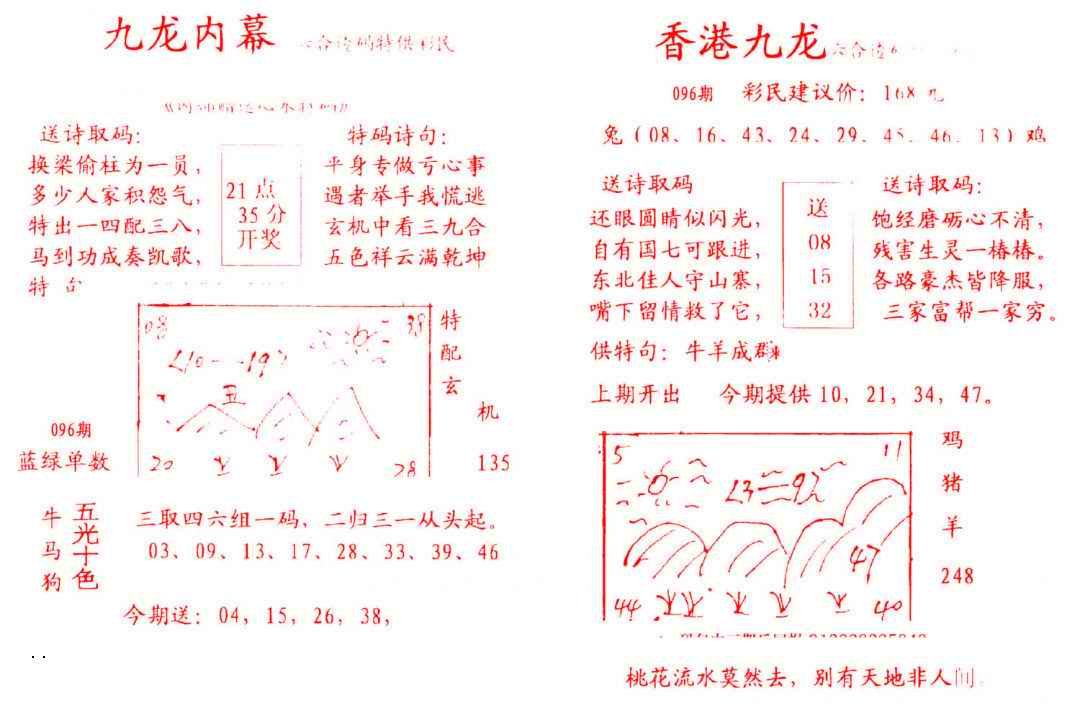 九龙内幕
特供彩民
送诗取码:
换梁偷柱为一员,
多少人家积怨气,
特出一四配三八,
马到功成奏凯歌,
特
21点
35分
开奖
特码诗句:
平身专做亏心事
遇者举手我慌逃
玄机中看三九合
五色祥云满乾坤
08
38
丑
20
28
特
配
玄
机
135
096期
蓝绿单数
牛
马
狗
五光十色
三取四六组一码, 二归三一从头起。
03、09、13、17、28、33、39、46
今期送: 04, 15, 26, 38,
香港九龙
096期 彩民建议价: 168
兔(08、16、43、24、29、45、46、13)鸡
送诗取码
还眼圆睛似闪光,
自有国七可跟进,
东北佳人守山寨,
嘴下留情救了它,
送
08
15
32
送诗取码:
饱经磨砺心不清,
残害生灵一椿椿。
各路豪杰皆降服,
三家富帮一家穷。
供特句: 牛羊成群
上期开出 今期提供10, 21, 34, 47。
5
11
47
44
40
鸡
猪
羊
248
桃花流水莫然去, 别有天地非人间